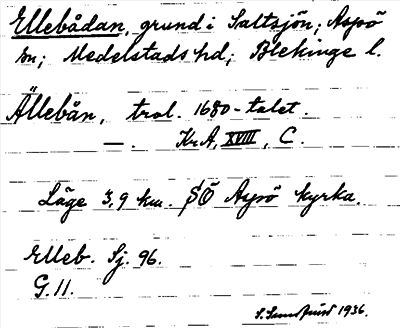 Ellebådan, grund i Saltsjön; Aspö
sn; Medelstads hd; Blekinge l.
Ällebån, trol. 1680-talet.
—. KrA, XVIII, C.
Läge 3,9 km. SÖ Aspö kyrka.
Elleb. Sj. 96.
G. 11.
S. Sundqvist 1936.